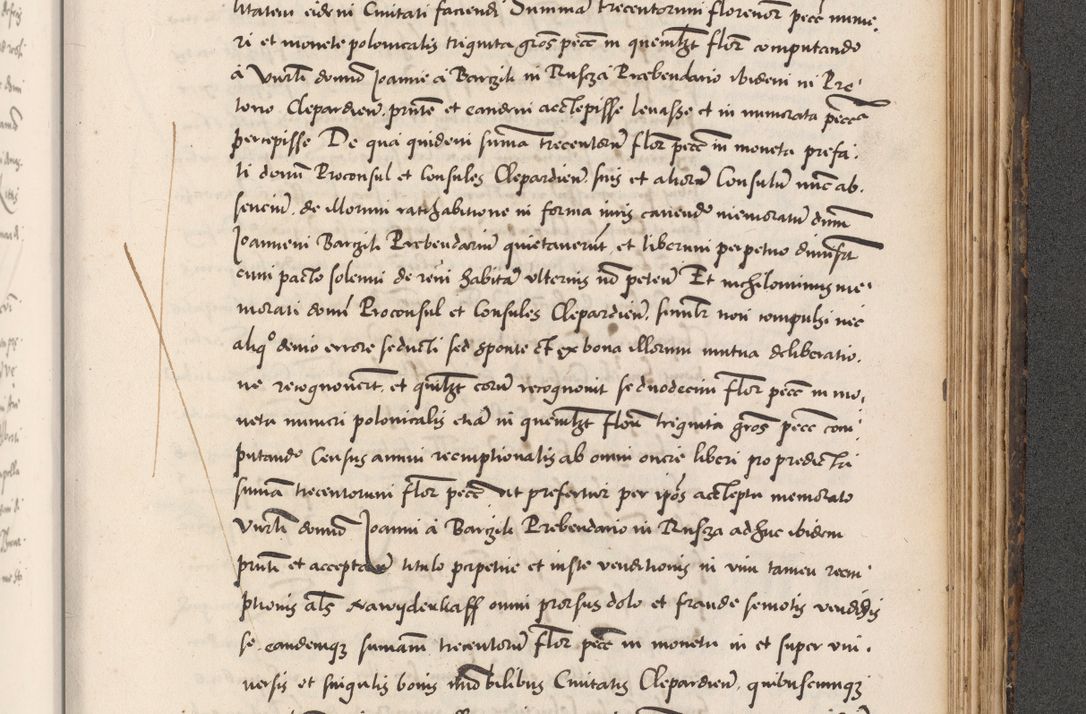 litatem eidem Civitati faciendi Summam trecentorum florenor pecc nume
ri et monete polonicalis triginta gros pecc in quemlbzt flor computando
a Vnrli domino Joanne a Barzili in Rusza Prebendario ibidem in Pre
torio Clepardien. pnte et eandem accepisse levasse et in numerata pecca
percepisse De qua quidem suma trecentoru flor pecc in moneta prefa
ti domi Proconsul et Consules Clepardien. suis et alioru Consulu nuc ab
sencium. de illorum ratihabitione in forma iuris cavendo memoratu dnum
Joannem Barzili Prebendarium quietaverut et liberum perpetuo dimisert
cum pacto solemni de re in habita ulterius no peten Et nichilominus me
morati domi Proconsul et Consules Clepardien. similr non compulsi nec
aliqo devio errore seducti sed sponte et ex bona illorum mutua deliberatio
ne recognovert. et quilbzt coru recognovit se duodecim flor pecc in mo
neta numeri polonicalis etia in quemlbzt floru triginta gros pecc com
putando Census annui reemptionalis ab omni onere liberi pro predicta
suma trecentorum flor pecc ut prefertur per ipos accepta memorato
Vnrli domino Joanni a Barzili Prebendario in Rusza adhuc ibidem
pnti et acceptanti titulo perpetue et iuste venditionis in vim tamen reem
ptionis als nawyderkaff omni prorsus dolo et fraude semotis vendidis
se eandemqz sumam trecentoru flor pecc in moneta in et super uni
versis et singulis bonis imobilibus Civitatis Clepardien. quibuscumqz